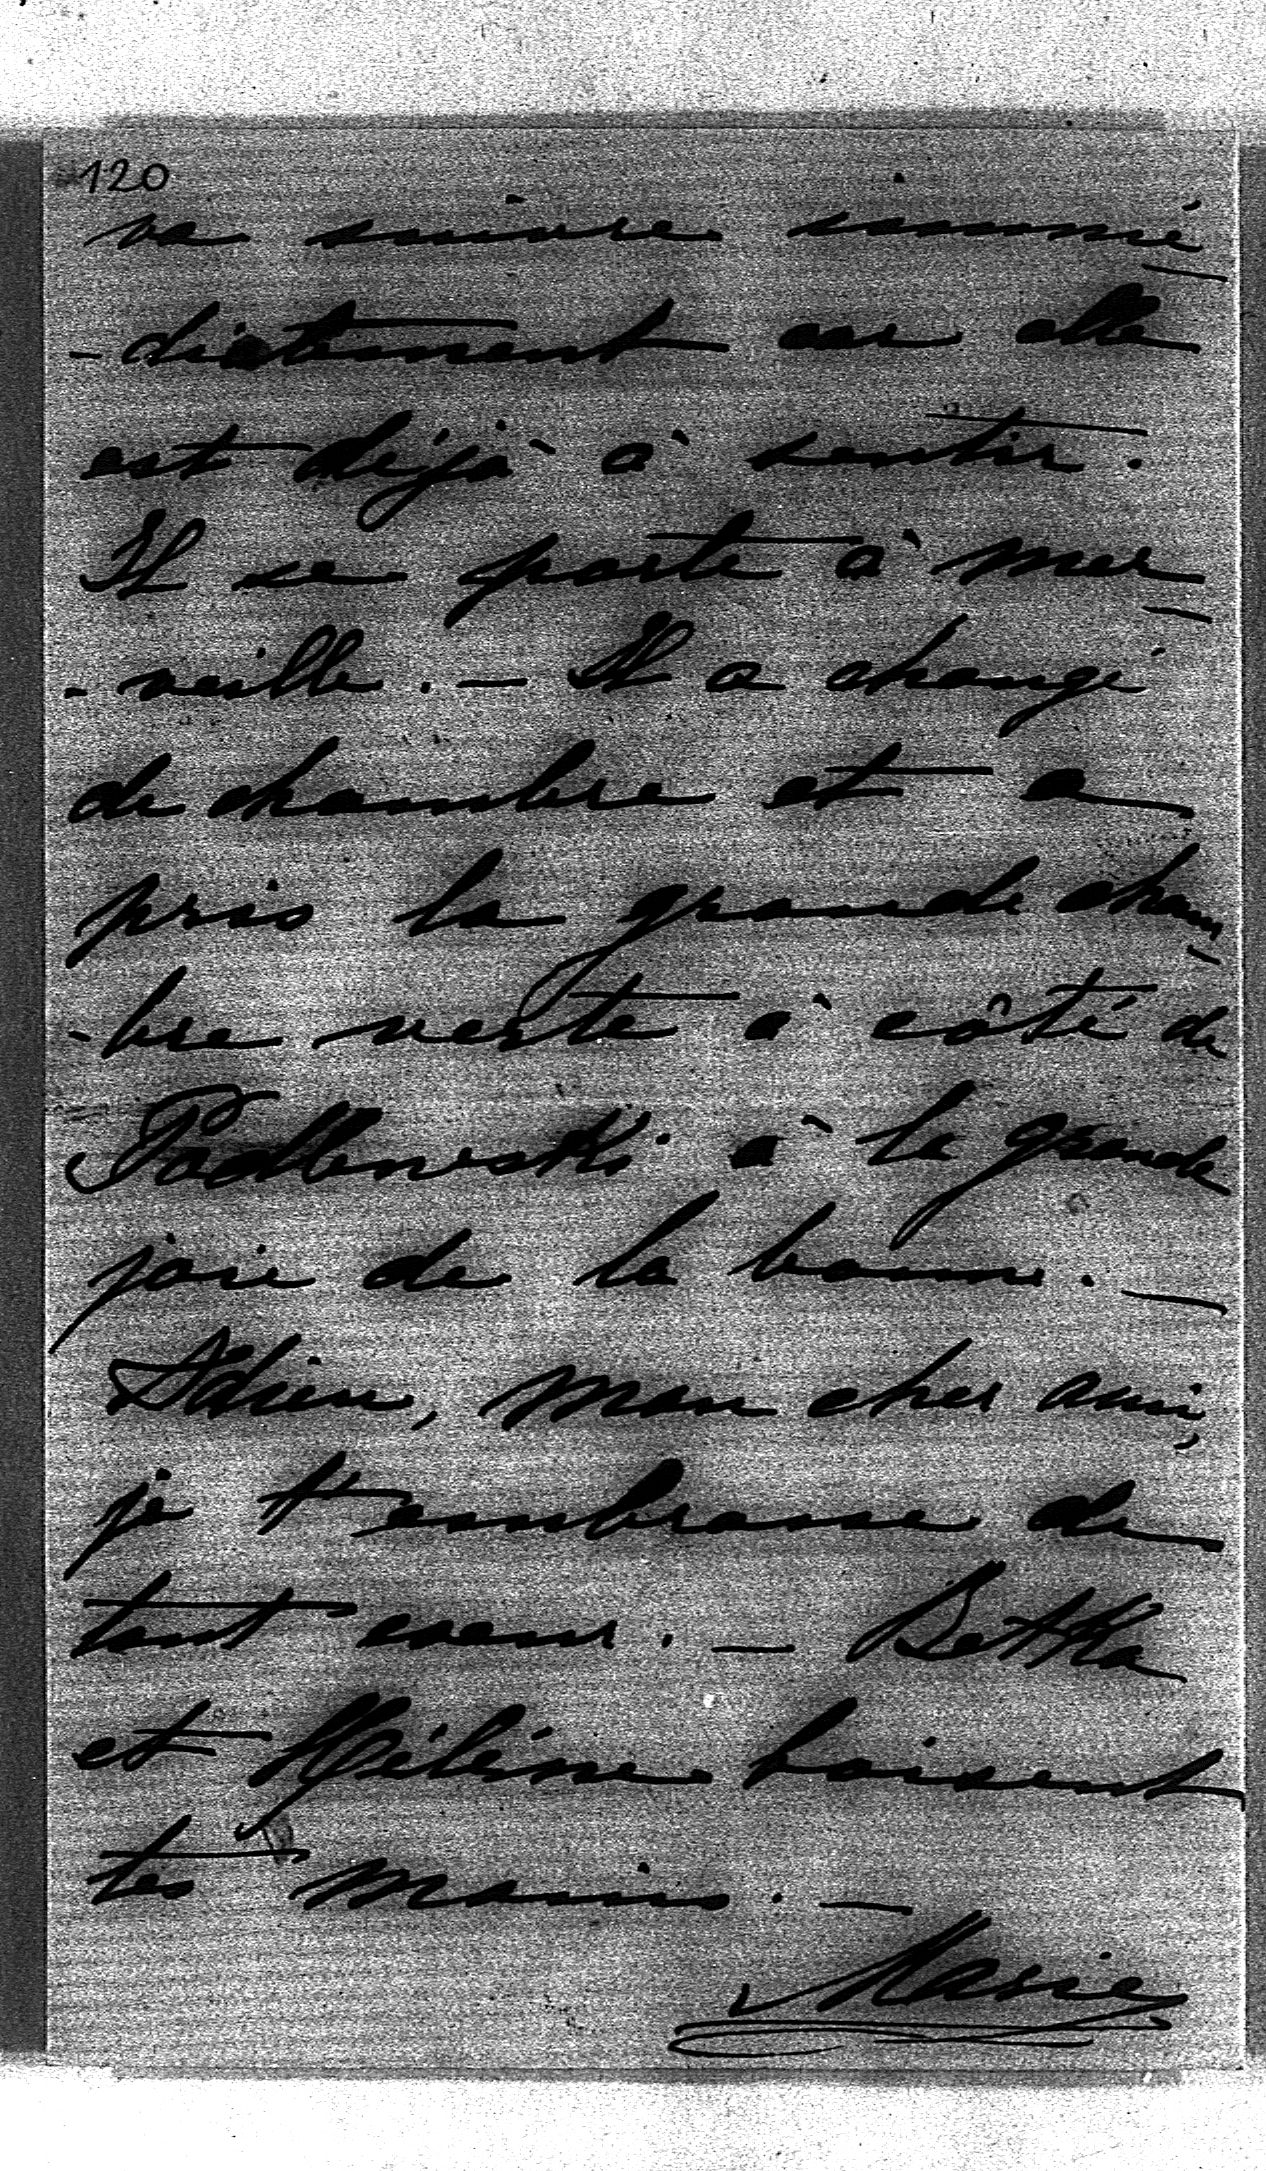 120
va suivre immé-
-diatement car elle
est déjà à sentir.
Il se porte à mer-
-veille. — Il a changé
de chambre et a
pris la grande cham-
-bre verte à côté de
Podlewski à la grande
joie de la bonne. —
Adieu, mon cher ami,
je t'embrasse de
tout coeur. — Betka
et Hélène baisent
tes mains. —
Marie